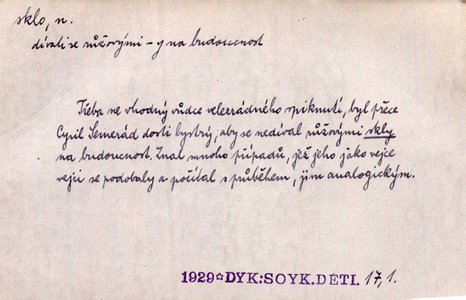 sklo, n.
dívati se růžovými -y na budoucnost
Třeba ne vhodný vůdce velezrádného spiknutí, byl přece
Cyril Semerád dosti bystrý, aby se nedíval růžovými skly
na budoucnost. Znal mnoho případů, jež jeho jako vejce
vejci se podobaly a počítal s průběhem, jim analogickým.
1929☆DYK:SOYK.DĚTI. 17,1.